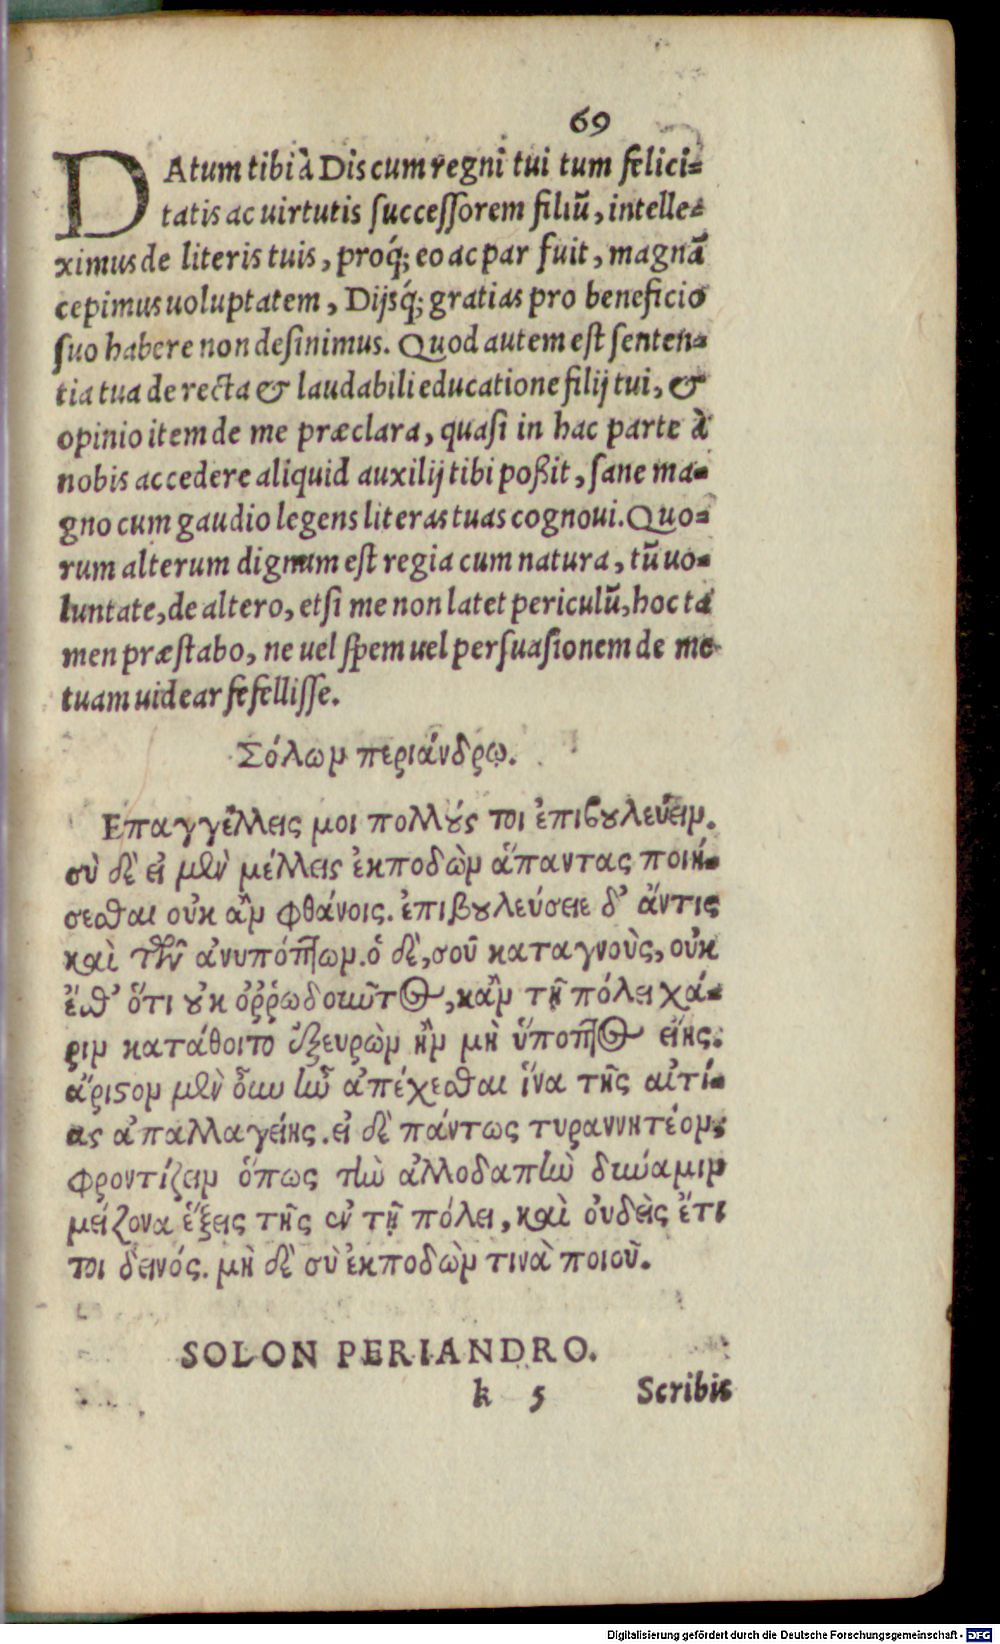 69
DAtum tibi à Dis cum regni tui tum felici=
tatis ac uirtutis ſucceſſorem filiũ, intelle=
ximus de literis tuis, proq́; eo ac par fuit, magnã
cepimus uoluptatem, Dijsq́; gratias pro beneficio
ſuo habere non deſinimus. Quod autem eſt ſenten=
tia tua de recta & laudabili educatione filij tui, &
opinio item de me præclara, quaſi in hac parte à
nobis accedere aliquid auxilij tibi poßit, ſane ma=
gno cum gaudio legens literas tuas cognoui. Quo=
rum alterum dignum eſt regia cum natura, tũ uo=
luntate, de altero, etſi me non latet periculũ, hoc tã
men præſtabo, ne uel ſpem uel perſuaſionem de me
tuam uidear fefelliſſe.
Σόλων περιάνδρῳ.
Επαγγέλλεις μοι πολλούς τοι ἐπιβουλεύειν.
σὺ δὲ εἰ μὲν μέλλεις ἐκποδὼν ἅπαντας ποιή=
σεσθαι οὐκ ἂν φθάνοις. ἐπιβουλεύσειε δ' ἄντις
καὶ τῶν ἀνυπόπτων. ὁ δὲ, σοῦ καταγνοὺς, οὐκ
ἔσθ' ὅτι οὐκ ὀῤῥωδοιῶτος, κἂν τῇ πόλει χά=
ριν κατάθοιτο ἐξευρὼν ἢν μὴ ὕποπτος εἴης.
ἄριστον μὲν οὖν ἦν ἀπέχεσθαι ἵνα τῆς αἰτί=
ας ἀπαλλαγείης. εἰ δὲ πάντως τυραννητέον,
φροντίζειν ὅπως τὴν ἀλλοδαπὴν δύναμιν
μείζονα ἕξεις τῆς ἐν τῇ πόλει, καὶ οὐδεὶς ἔτι
τοι δεινός. μὴ δὲ σὺ ἐκποδὼν τινὰ ποιοῦ.
SOLON PERIANDRO.
k 5 Scribis
Digitalisierung gefördert durch die Deutsche Forschungsgemeinschaft - DFG